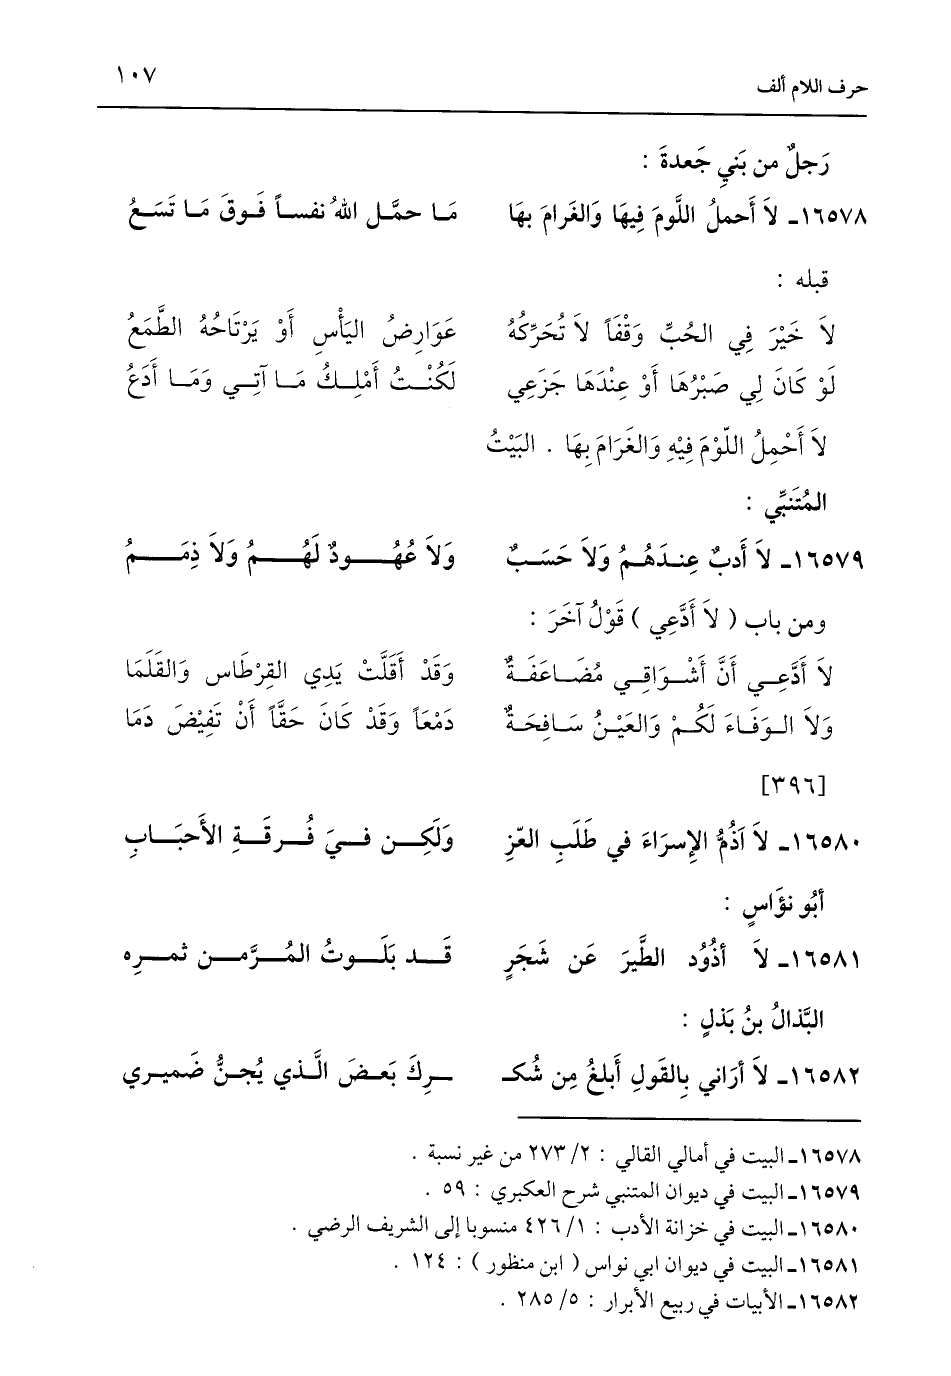 حرف اللام ألف ١٠٧
رَجلٌ من بَنيِ جَعدةَ :
١٦٥٧٨ـ لاَ أَحملُ اللَّومَ فِيهَا وَالغَرامَ بهَا مَـا حمَّـل اللهُ نفسـاً فَـوقَ مَـا تَسَـعُ
قبله :
لاَ خَيْرَ فِي الحُبِّ وَقْفَاً لاَ تُحَرِّكُهُ عَوَارِضُ اليَأْسِ أَوْ يَرْتَاحُهُ الطَّمَعُ
لَوْ كَانَ لِي صَبْرُهَا أَوْ عِنْدَهَا جَزَعِي لَكُنْـتُ أَمْلِـكُ مَـا آتِـي وَمَـا أَدَعُ
لاَ أَحْمِلُ اللّوْمَ فِيْهِ وَالغَرَامَ بِهَا . البَيْتُ
المُتَنبِّي :
١٦٥٧٩ـ لاَ أَدبٌ عِنـدَهُـمُ وَلاَ حَسَـبٌ وَلاَ عُهُـــودٌ لَهُـــمُ وَلاَ ذِمَـــمُ
ومن باب ( لاَ أَدَّعِي ) قَوْلُ آخَرَ :
لاَ أَدَّعِـي أَنَّ أَشْـوَاقِـي مُضَـاعَفَـةٌ وَقَدْ أَقَلَّتْ يَدِي القِرْطَاس وَالقَلَمَا
وَلاَ الـوَفَـاءَ لَكُـمْ وَالعَيْـنُ سَـافِحَـةٌ دَمْعَاً وَقَدْ كَانَ حَقَّاً أَنْ تَفِيْضَ دَمَا
[٣٩٦]
١٦٥٨٠ـ لاَ اَذُمُّ الإِسرَاءَ في طَلَبِ العّزِ وَلَكِـــن فـــيَ فُـــرقَـــةِ الأَحبَـــابِ
أبُو نؤَاسٍ :
١٦٥٨١ـ لاَ أذُوُد الطَّيرَ عَن شَجَرٍ قَـــد بَلَـــوتُ المُـــرَّمـــن ثمـــرِه
البَّذالُ بنُ بَذلٍ :
١٦٥٨٢ـ لاَ أرَاني بِالقَولِ أَبلغُ مِن شُكـ ـــرِكَ بَعـضَ الَّـذي يُجـنُّ ضَميـري
١٦٥٧٨ـ البيت في أمالي القالي : ٢/ ٢٧٣ من غير نسبة .
١٦٥٧٩ـ البيت في ديوان المتنبي شرح العكبري : ٥٩ .
١٦٥٨٠ـ البيت في خزانة الأدب : ١/ ٤٢٦ منسوبا إلى الشريف الرضي .
١٦٥٨١ـ البيت في ديوان ابي نواس ( ابن منظور ) : ١٢٤ .
١٦٥٨٢ـ الأبيات في ربيع الأبرار : ٥/ ٢٨٥ .